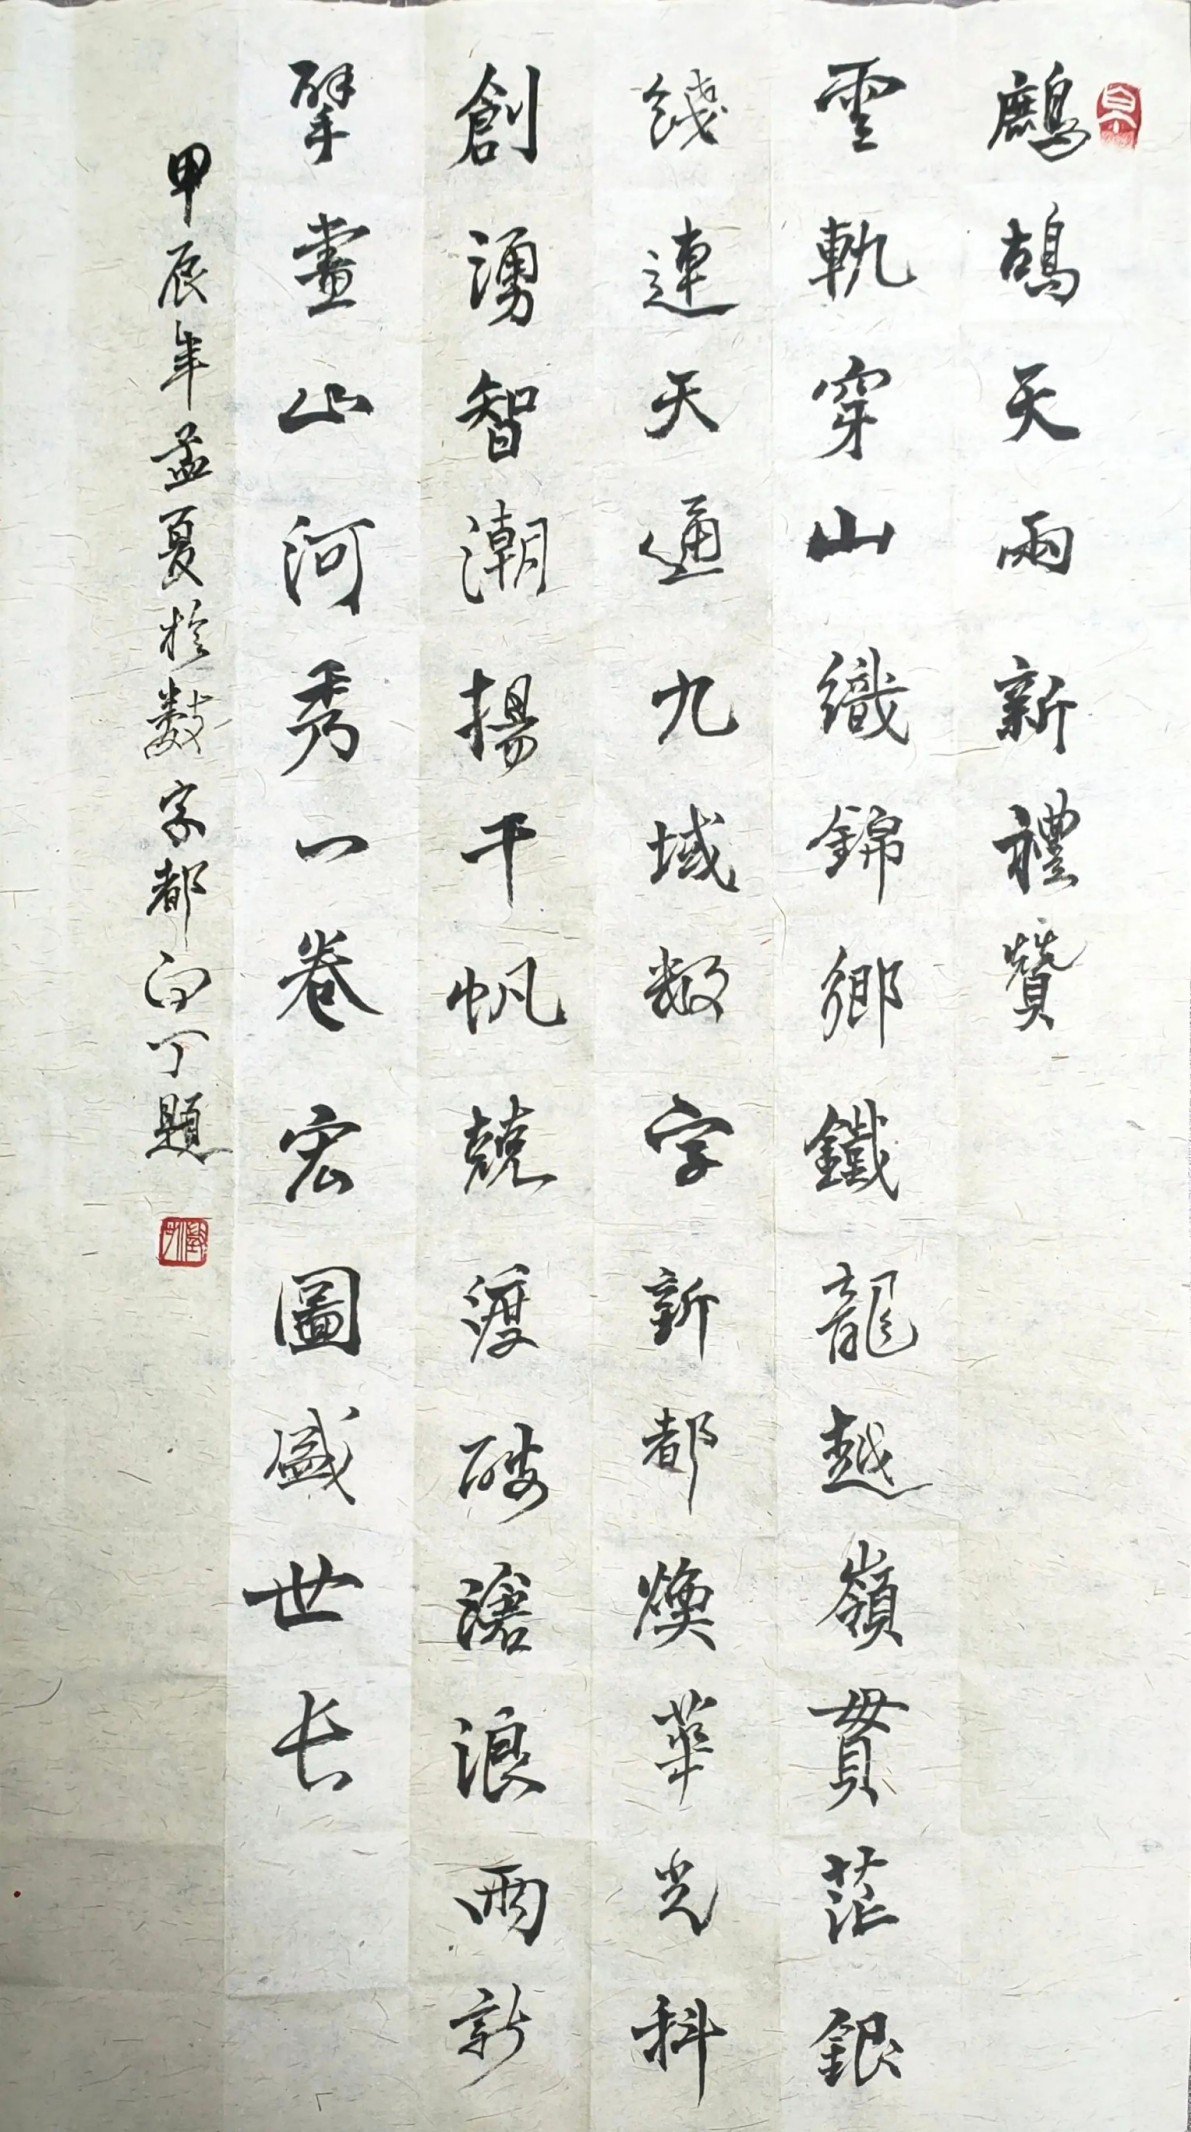 鷓鴣天兩新禮贊
雲軌穿山織錦鄉鐵龍越嶺貫茫銀
綫連天通九域数字新都煥華光科
創湧智潮揚千帆競渡破滄浪兩新
擘畫山河秀一卷宏圖盛世长
甲辰年孟夏於數字都白丁題